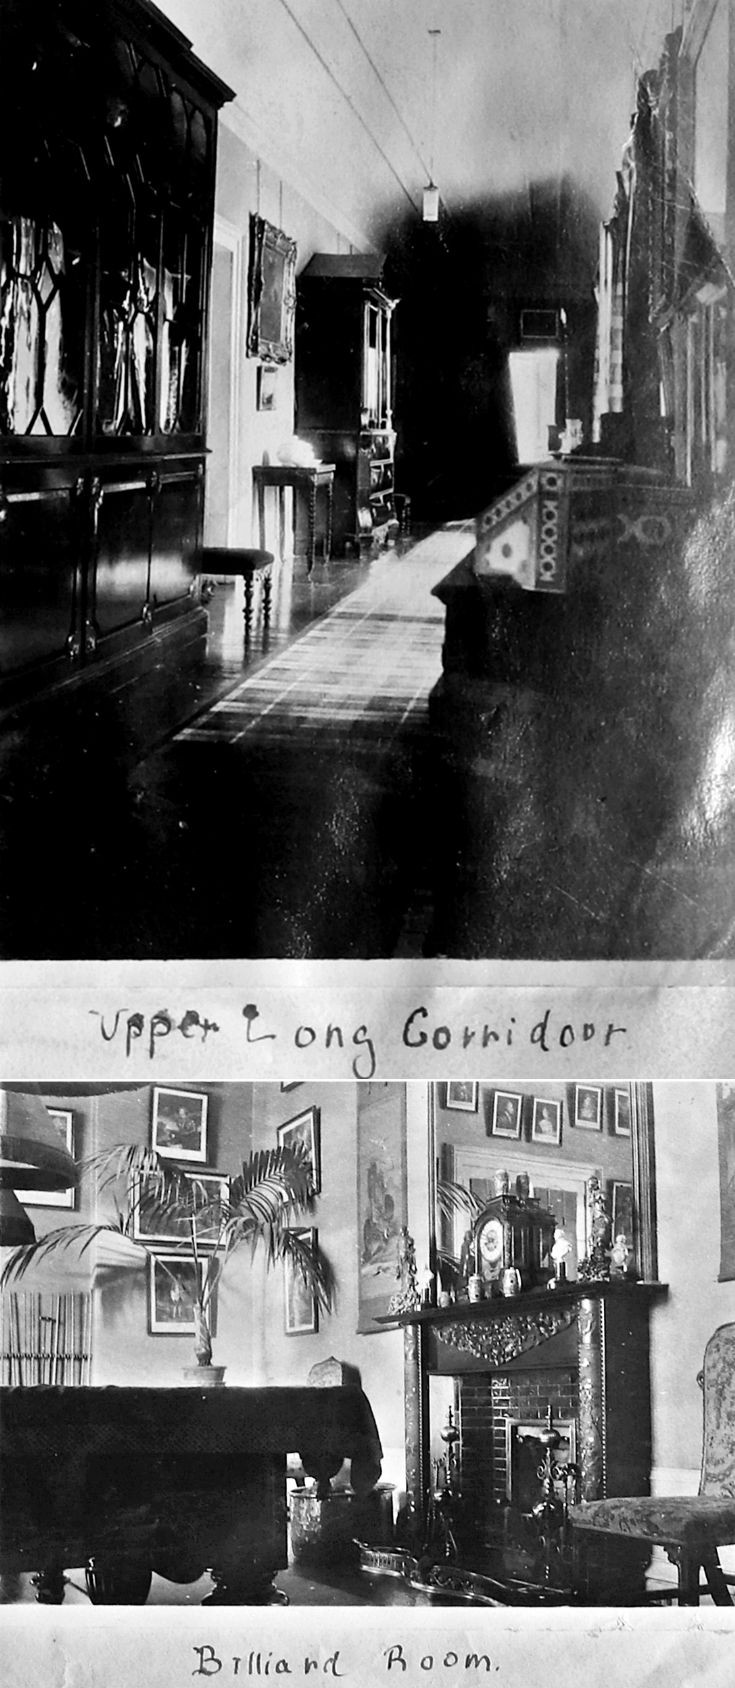 Upper Long Corridoor.
Billiard Room.